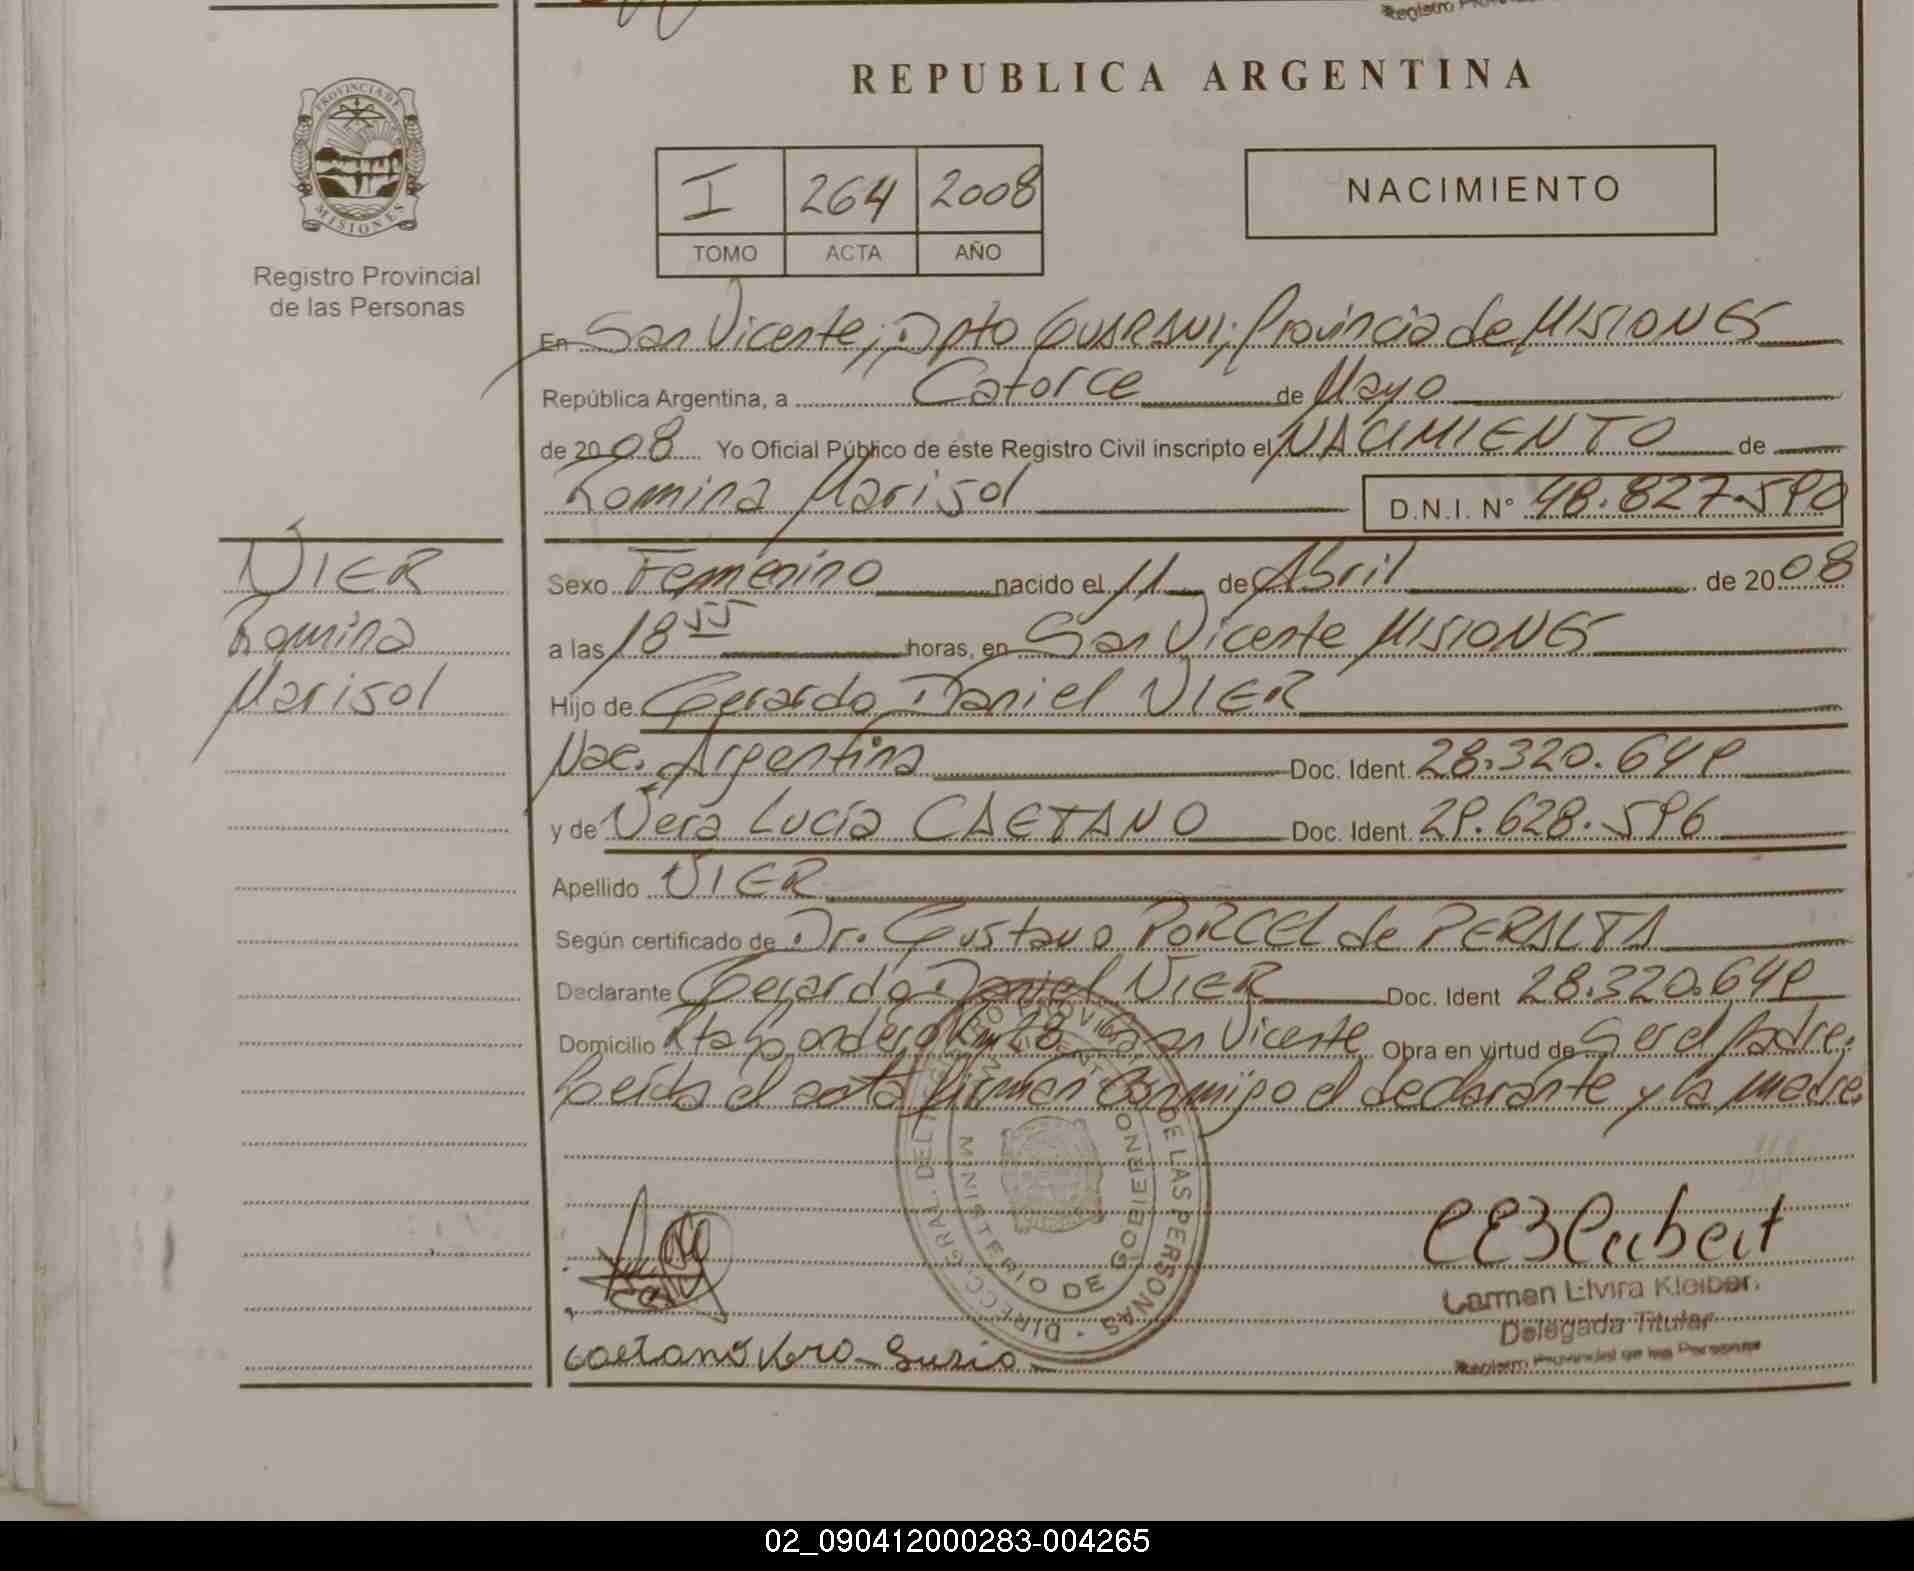 REPUBLICA ARGENTINA
PROVINCIA DE
MISIONES
Registro Provincial
de las Personas
I 264 2008
TOMO ACTA AÑO
NACIMIENTO
En San Vicente, Dpto GUARANI; Provincia de MISIONES
República Argentina, a Catorce de Mayo
de 2008 Yo Oficial Público de éste Registro Civil inscripto el NACIMIENTO de
Romina Marisol D.N.I. N° 48.827.590
VIER
Romina
Marisol
Sexo Femenino nacido el 11 de Abril de 2008
a las 18 55 horas, en San Vicente MISIONES
Hijo de Gerardo Daniel VIER
Nac. Argentina Doc. Ident. 28.320.649
y de Vera Lucía CAETANO Doc. Ident. 29.628.596
Apellido VIER
Según certificado de Dr. Gustavo PORCEL de PERALTA
Declarante Gerardo Daniel VIER Doc. Ident 28.320.649
Domicilio Km 28 San Vicente Obra en virtud de Ser el padre.
Leída el acta firman conmigo el declarante y la madre.
DE LAS PERSONAS
MINISTERIO DE GOBIERNO
Carmen Elvira Kleiber
Delegada Titular
Registro Provincial de las Personas
caetano
02_090412000283-004265